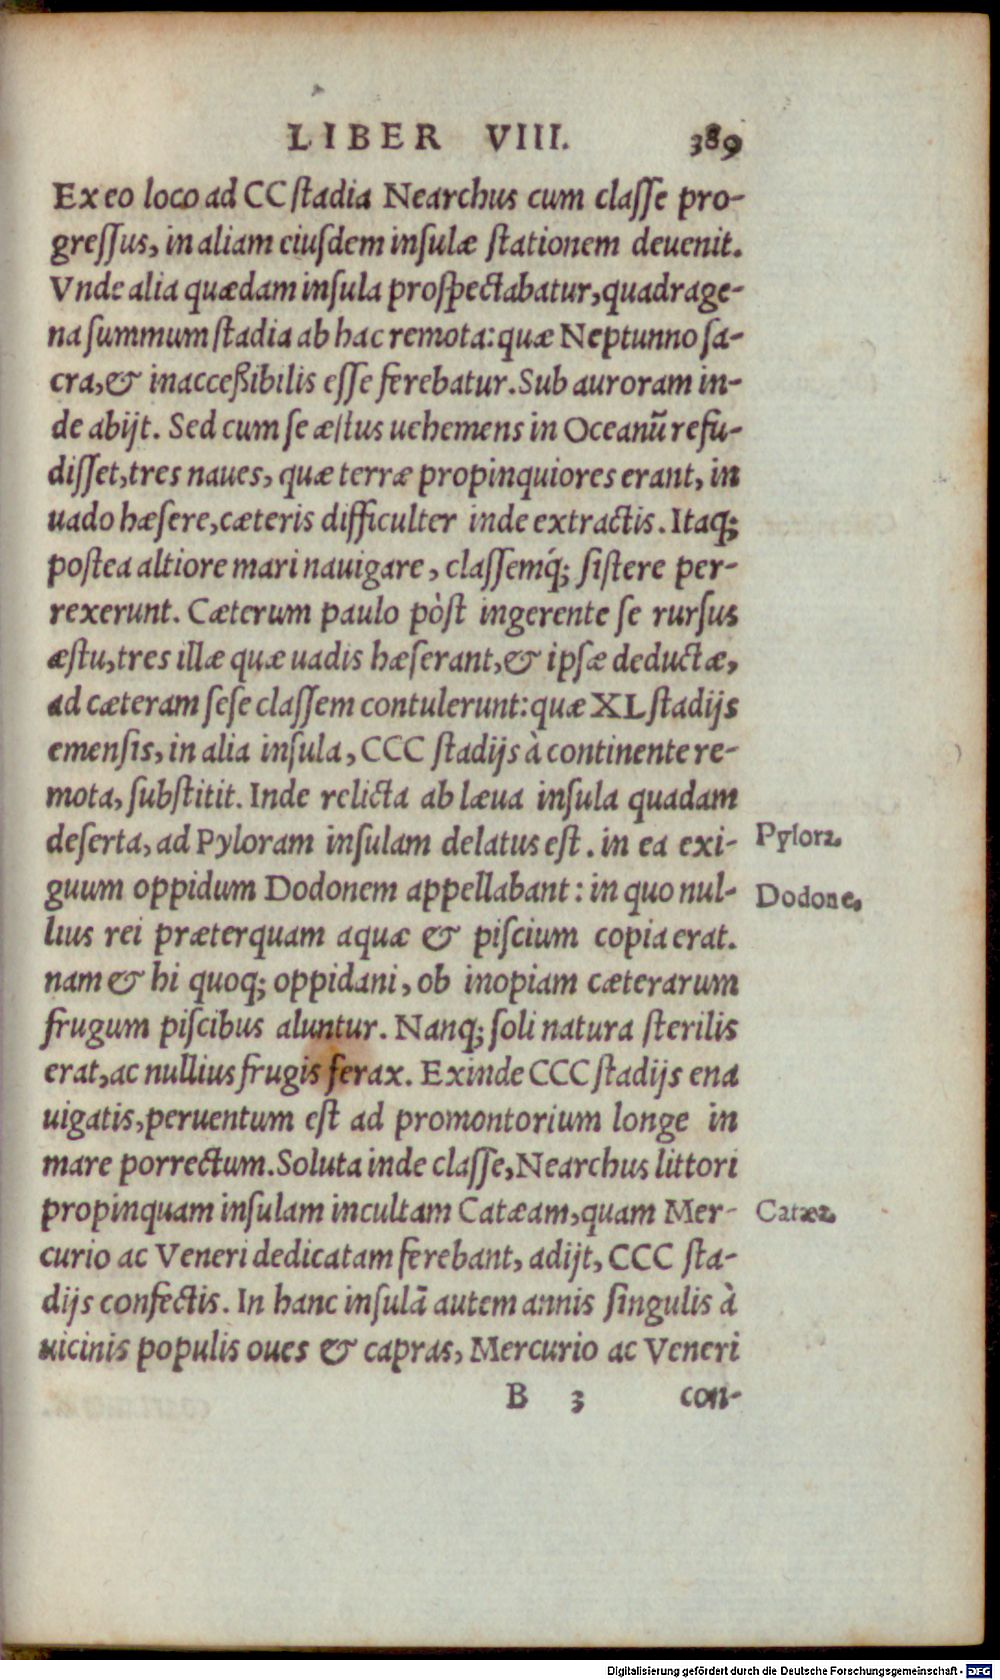 LIBER VIII. 389
Ex eo loco ad CC ſtadia Nearchus cum claſſe pro-
greſſus, in aliam eiuſdem inſulæ ſtationem deuenit.
Vnde alia quædam inſula proſpectabatur, quadrage-
na ſummum ſtadia ab hac remota: quæ Neptunno ſa-
cra, & inacceßibilis eſſe ferebatur. Sub auroram in-
de abijt. Sed cum ſe æſtus uehemens in Oceanũ refu-
diſſet, tres naues, quæ terræ propinquiores erant, in
uado hæſere, cæteris difficulter inde extractis. Itaq;
poſtea altiore mari nauigare, claſſemq́; ſiſtere per-
rexerunt. Cæterum paulo pòſt ingerente ſe rurſus
æſtu, tres illæ quæ uadis hæſerant, & ipſæ deductæ,
ad cæteram ſeſe claſſem contulerunt: quæ XL ſtadijs
emenſis, in alia inſula, CCC ſtadijs à continente re-
mota, ſubſtitit. Inde relicta ab læua inſula quadam
deſerta, ad Pyloram inſulam delatus eſt. in ea exi-
Pylora.
guum oppidum Dodonem appellabant: in quo nul-
Dodone.
lius rei præterquam aquæ & piſcium copia erat.
nam & hi quoq; oppidani, ob inopiam cæterarum
frugum piſcibus aluntur. Nanq; ſoli natura ſterilis
erat, ac nullius frugis ferax. Exinde CCC ſtadijs ena
uigatis, peruentum eſt ad promontorium longe in
mare porrectum. Soluta inde claſſe, Nearchus littori
propinquam inſulam incultam Catæam, quam Mer-
Catæa.
curio ac Veneri dedicatam ferebant, adijt, CCC ſta-
dijs confectis. In hanc inſulã autem annis ſingulis à
uicinis populis oues & capras, Mercurio ac Veneri
B 3 con-
Digitalisierung gefördert durch die Deutsche Forschungsgemeinschaft - DFG